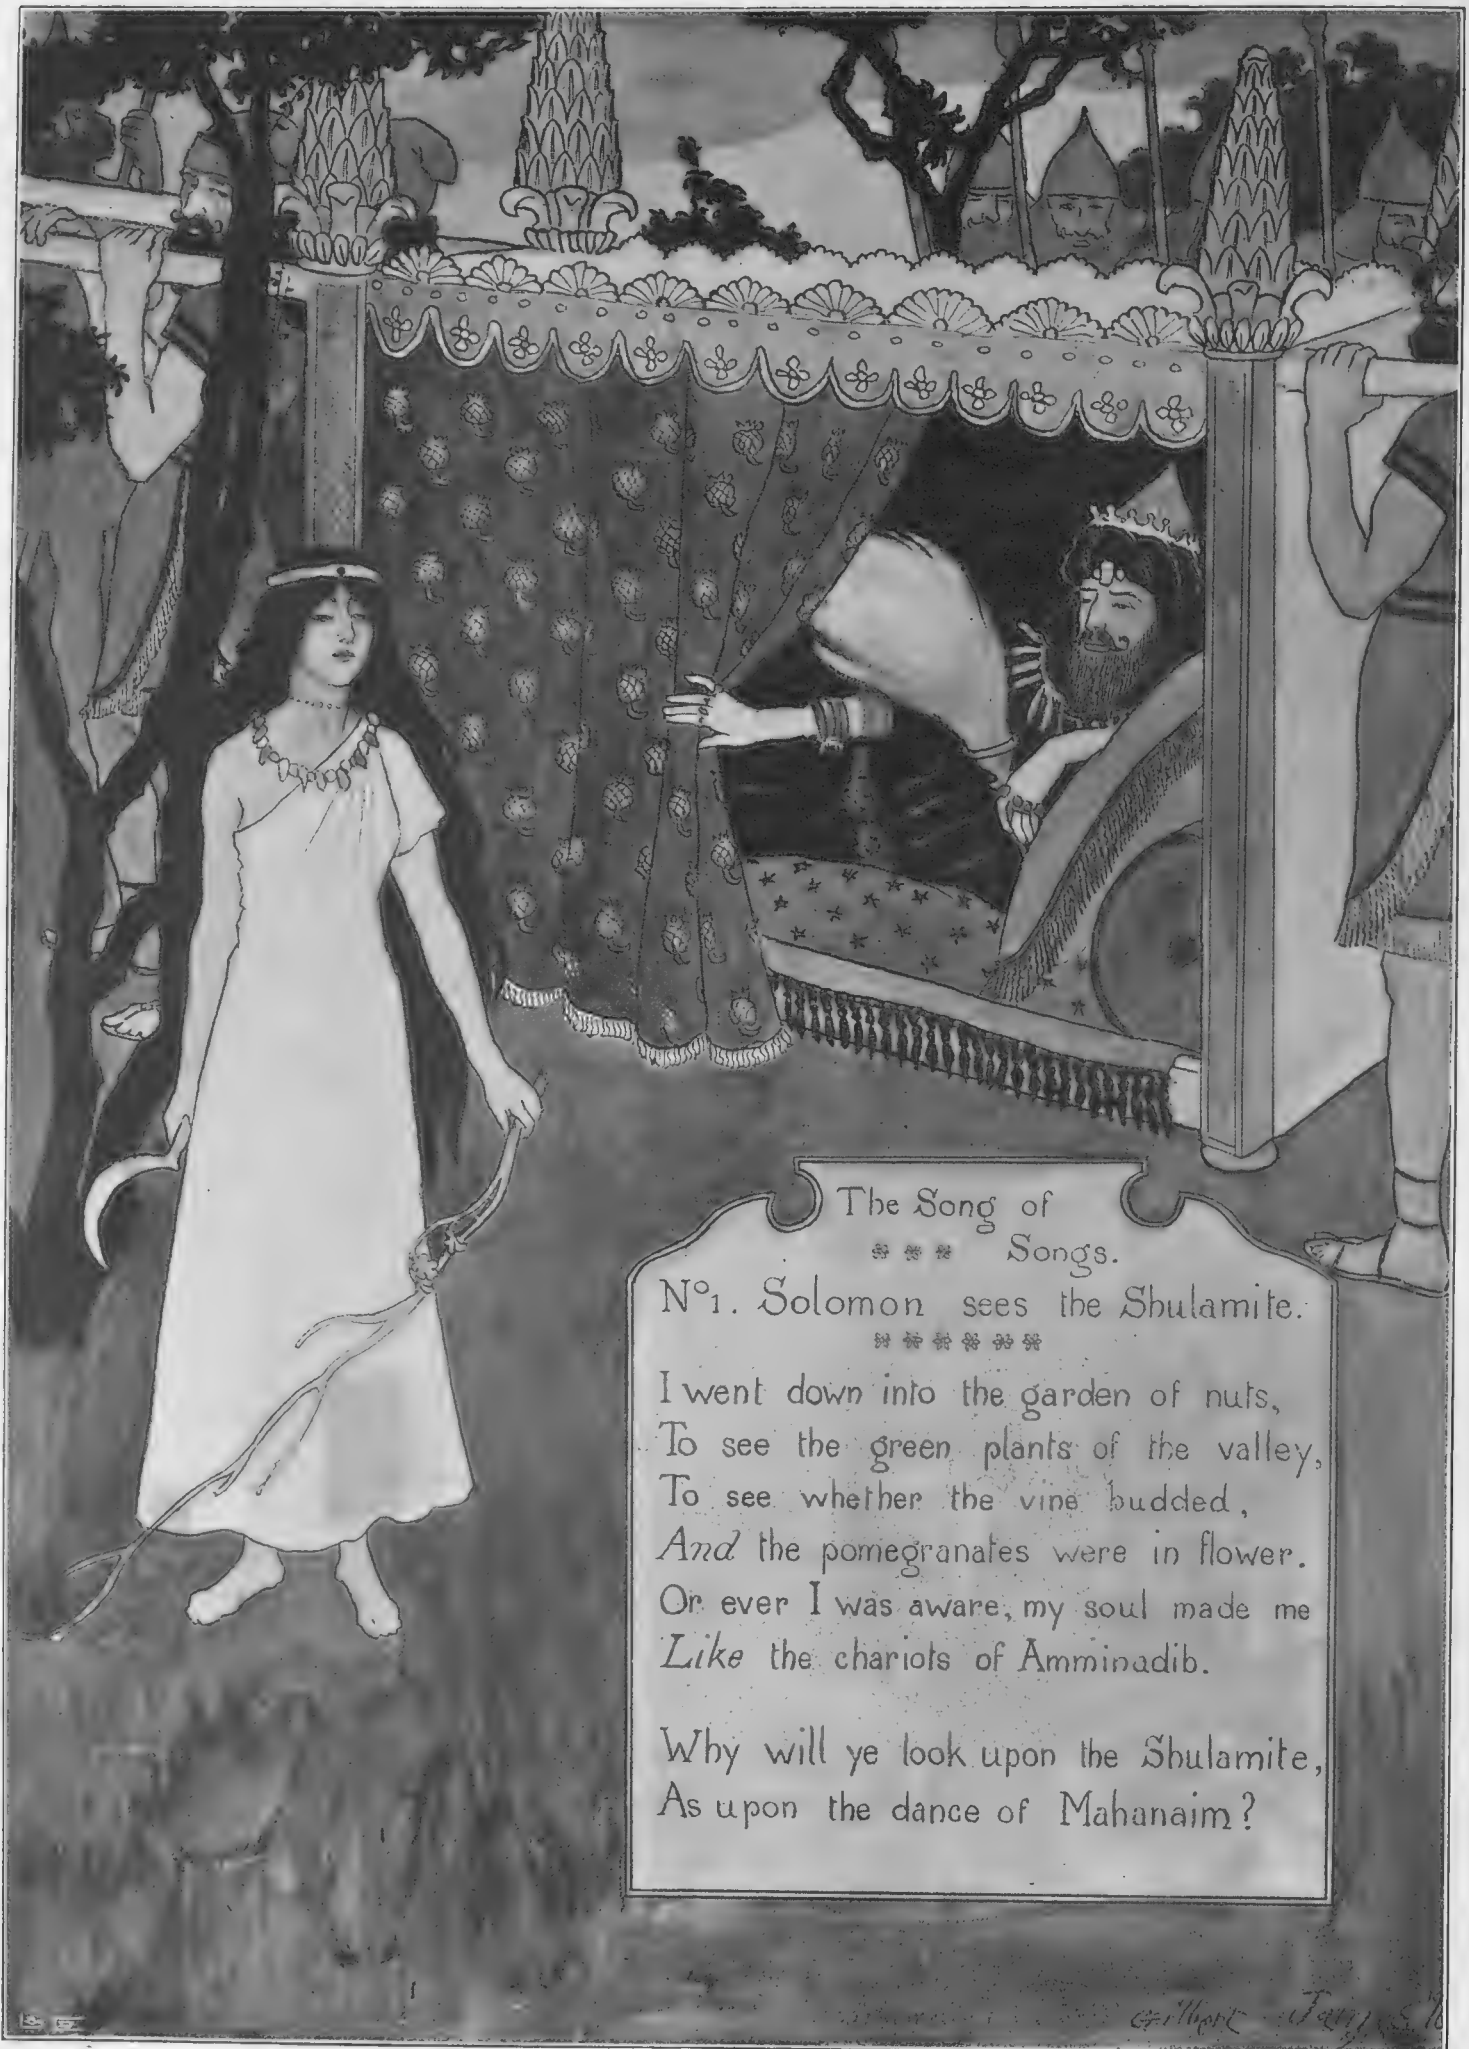 The Song of
Songs.
Nº1. Solomon sees the Shulamite.
I went down into the garden of nuts,
To see the green plants of the valley,
To see whether the vine budded,
And the pomegranates were in flower.
Or ever I was aware, my soul made me
Like the chariots of Amminadib.
Why will ye look upon the Shulamite,
As upon the dance of Mahanaim?
Gilbert James